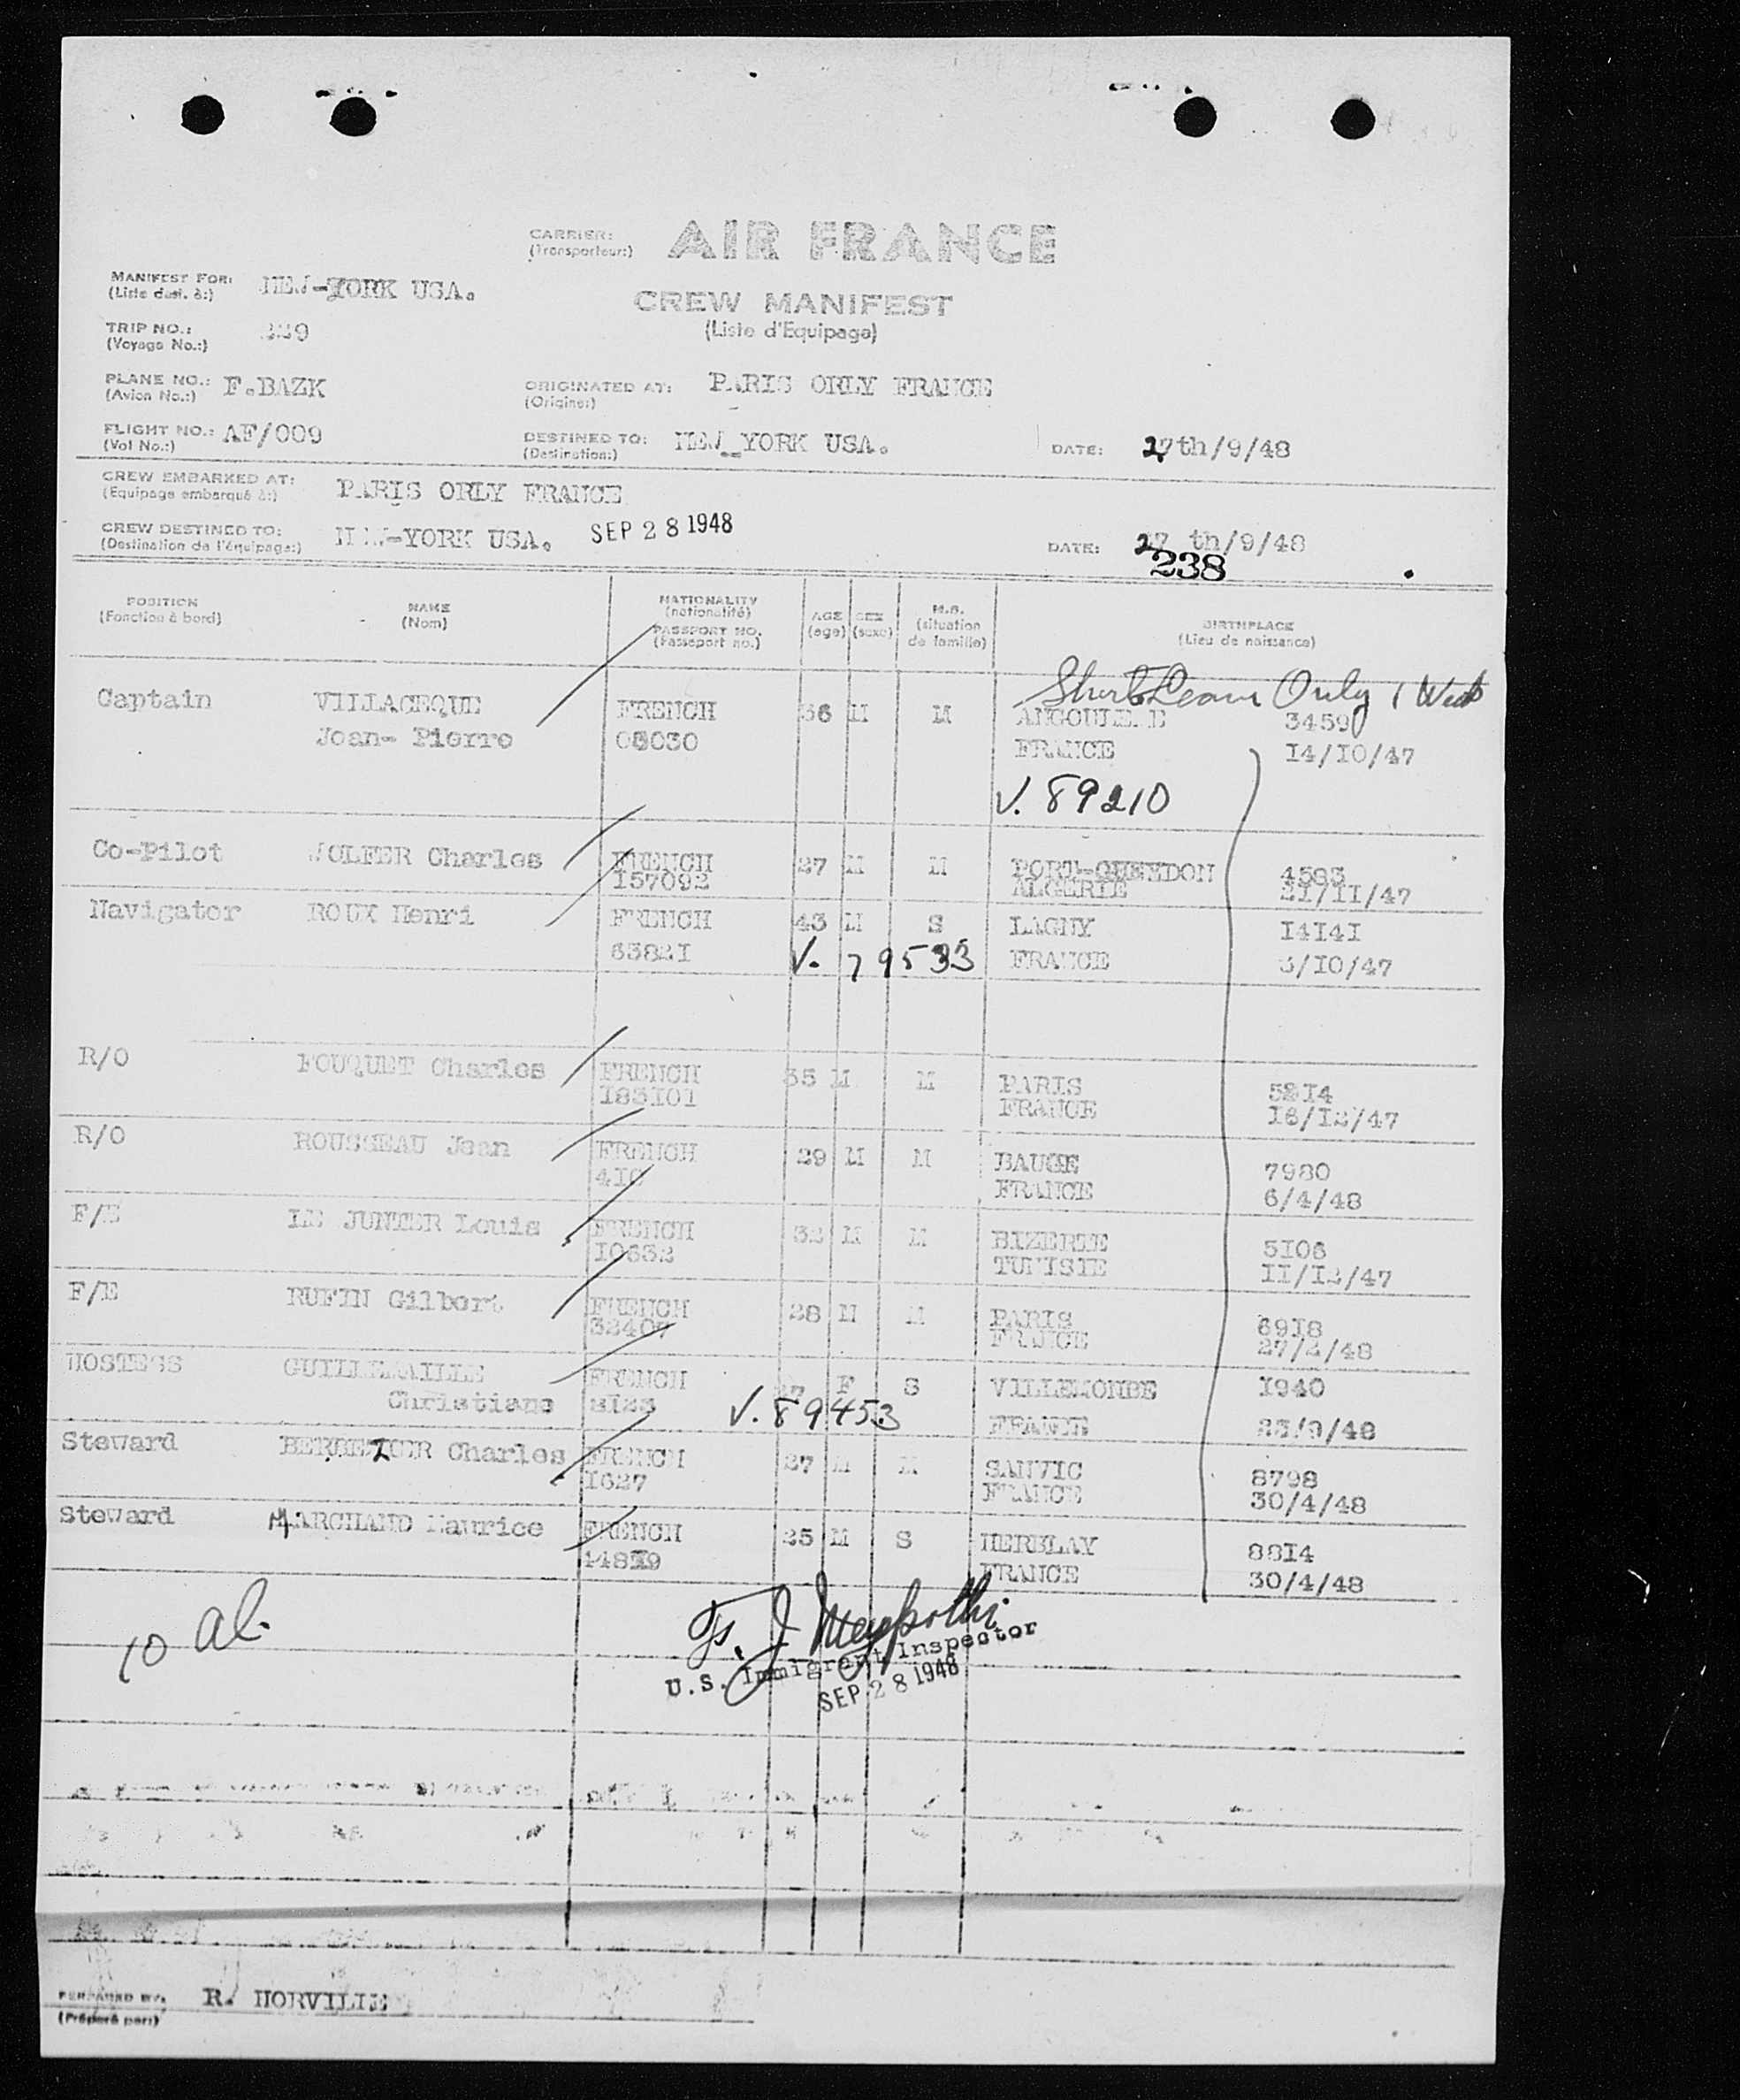 CARRIER:
(Transporteur:)
AIR FRANCE
MANIFEST FOR: NEW-YORK USA.
(Liste dest. à:)
CREW MANIFEST
(Liste d'Equipage)
TRIP NO.: 229
(Voyage No.:)
PLANE NO.: F.BAZK
(Avion No.:)
ORIGINATED AT: PARIS ORLY FRANCE
(Origine:)
FLIGHT NO.: AF/009
(Vol No.:)
DESTINED TO: NEW_YORK USA.
(Destination:)
DATE: 27th/9/48
CREW EMBARKED AT: PARIS ORLY FRANCE
(Equipage embarqué à:)
CREW DESTINED TO: NEW-YORK USA. SEP 28 1948
(Destination de l'équipage:)
DATE: 27 th/9/48
238
POSITION
(Fonction à bord)
NAME
(Nom)
NATIONALITY
(nationalité)
PASSPORT NO.
(Passeport no.)
AGE
(age)
SEX
(sexe)
M.S.
(situation
de famille)
BIRTHPLACE
(Lieu de naissance)
Short Leave Only 1 Week
Captain VILLACEQUE FRENCH 36 M M ANGOULEME 3459
Jean- Pierre 08030 FRANCE 14/10/47
V. 89210
Co-Pilot WOLFER Charles FRENCH 27 M M PORT-GUEYDON 4583
157092 ALGERIE 21/11/47
Navigator ROUX Henri FRENCH 43 M S LAGNY 14141
63821 V. 79533 FRANCE 3/10/47
R/O FOUQUET Charles FRENCH 35 M M PARIS 5214
183101 FRANCE 16/12/47
R/O ROUSSEAU Jean FRENCH 29 M M BAUGE 7980
FRANCE 6/4/48
F/E LE JUNTER Louis FRENCH 32 M M BIZERTE 5106
10632 TUNISIE 11/12/47
F/E RUFIN Gilbert FRENCH 28 M M PARIS 6918
32407 FRANCE 27/4/48
HOSTESS GUILLEMAILLE FRENCH 27 F S VILLEMOMBE 1940
Christiane V. 89453 FRANCE 23/9/48
Steward Charles FRENCH 27 M M SANVIC 8798
1627 FRANCE 30/4/48
Steward MARCHAND Maurice FRENCH 25 M S HERBLAY 8814
FRANCE 30/4/48
10 al.
U.S. Immigrant Inspector
SEP 28 1948
PREPARED BY: R. HORVILLE
(Préparé par:)